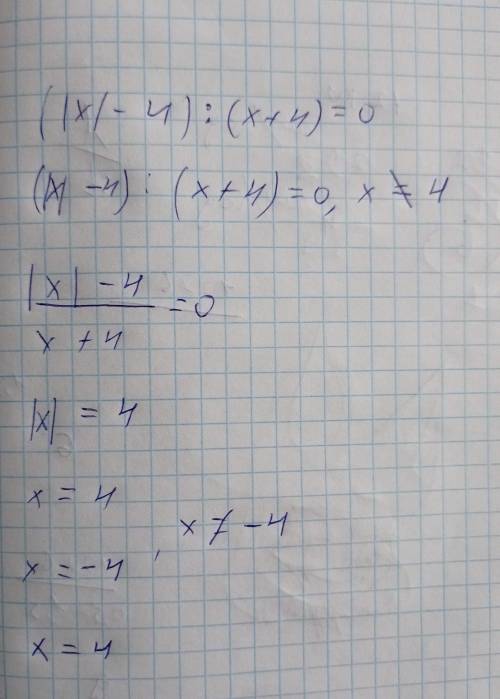 (|x|-4):(x+4)=0
(|x|-4):(x+4)=0, x≠4
|x|-4
x+4
=0
|x|=4
x=4
x=-4, x≠-4
x=4